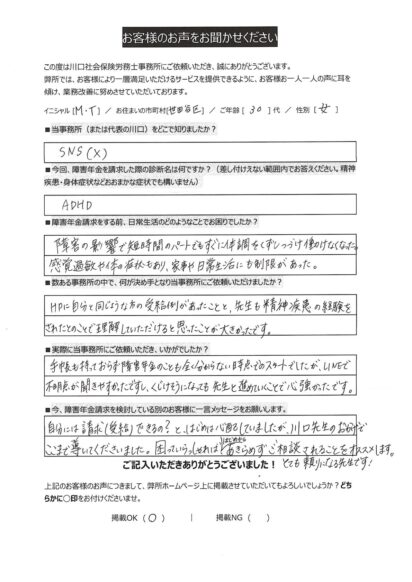 お客様のお声をお聞かせください
この度は川口社会保険労務士事務所にご依頼いただき、誠にありがとうございます。
弊所では、お客様により一層満足いただけるサービスを提供できるように、お客様お一人一人の声に耳を
傾け、業務改善に努めさせていただいております。
イニシャル [M・T] / お住まいの市町村 [世田谷区] / ご年齢 [30] 代 / 性別 [女]
■当事務所（または代表の川口）をどこで知りましたか？
SNS(X)
■今回、障害年金を請求した際の診断名は何ですか？（差し付けえない範囲内でお答えください。精神
疾患・身体症状などおおまかな症状でも構いません）
ADHD
■障害年金請求をする前、日常生活のどのようなことでお困りでしたか？
障害の影響で短時間のパートでもすぐに体調をくずしつづけ働けなくなった。
感覚過敏や体の症状もあり、家事や日常生活にも制限があった。
■数ある事務所の中で、何が決め手となり当事務所にご依頼いただけましたか？
HPに自分と同じような方の受給例があったことと、先生も精神疾患の経験を
されたとのことで理解していただけると思ったことが大きかったです。
■実際に当事務所にご依頼いただき、いかがでしたか？
手帳も持っておらず障害年金のことも全く分からない時点でのスタートでしたが、LINEで
不明点が聞きやすかったですし、くじけそうになっても先生と進めていくことで心強かったです。
■今、障害年金請求を検討している別のお客様に一言メッセージをお願いします。
自分には請求(受給)できるの？と、はじめは心配していましたが、川口先生のおかげで
ここまで導いてくださいました。困っていらっしゃれば、はじめからあきらめずご相談されることをオススメします。
とても頼りになる先生です！
ご記入いただきありがとうございました！
上記のお客様のお声につきまして、弊所ホームページ上に掲載させていただいてもよろしいでしょうか？どち
らかに〇印をお付けくださいませ。
掲載OK （ 〇 ） | 掲載NG （ ）